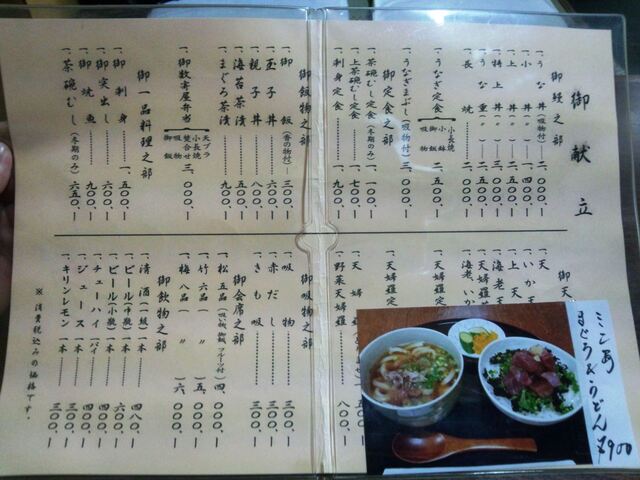 御献立
御鰻之部
一、うな丼(吸物付) 二、〇〇〇、ー
一、小丼(〃) 一、四〇〇、ー
一、上丼(〃)
一、特上丼(〃)
一、うな重(〃) 二、五〇〇、ー
一、長焼 二、〇〇〇、ー
一、うなぎ定食 小長焼 小鉢 御飯 吸物 二、五〇〇、ー
一、うなぎまぶし(吸物付) 三、〇〇〇、ー
御定食之部
一、茶碗むし定食 一、一〇〇、ー
一、上茶碗むし定食 一、七〇〇、ー
一、刺身定食 一、九〇〇、ー
御飯物之部
一、御飯(香の物付) 三〇〇、ー
一、玉子丼 六〇〇、ー
一、親子丼 八〇〇、ー
一、海苔茶漬 五〇〇、ー
一、まぐろ茶漬 九〇〇、ー
御数寄屋弁当 天プラ 小長焼 盛合せ 吸物 御飯 三、〇〇〇、ー
御一品料理之部
一、御刺身 一、五〇〇、ー
一、御突出し 六〇〇、ー
一、御焼魚 九〇〇、ー
一、茶碗むし(冬期のみ) 六五〇、ー
御天
一、天
一、いか天
一、上天
一、海老天
一、天婦羅
一、海老、いか
一、天婦羅定
一、天婦羅定
一、天婦
一、野菜天婦羅 八〇〇、ー
御吸物之部
一、吸物 三〇〇、ー
一、赤だし 三〇〇、ー
一、きも吸 三〇〇、ー
御会席之部
一、松五品(吸い物、御飯、フルーツ付) 四、〇〇〇、ー
一、竹六品(〃) 五、〇〇〇、ー
一、梅八品(〃) 六、〇〇〇、ー
御飲物之部
一、清酒(一級) 一本 四八〇、ー
一、ビール(中瓶) 一本 六〇〇、ー
一、ビール(小瓶) 一本 四〇〇、ー
一、チューハイ 一パイ 四〇〇、ー
一、ジュース 一本 三〇〇、ー
一、キリンレモン 一本 三〇〇、ー
※消費税込みの価格です。
ミニあ
まぐろ&うどん
¥900